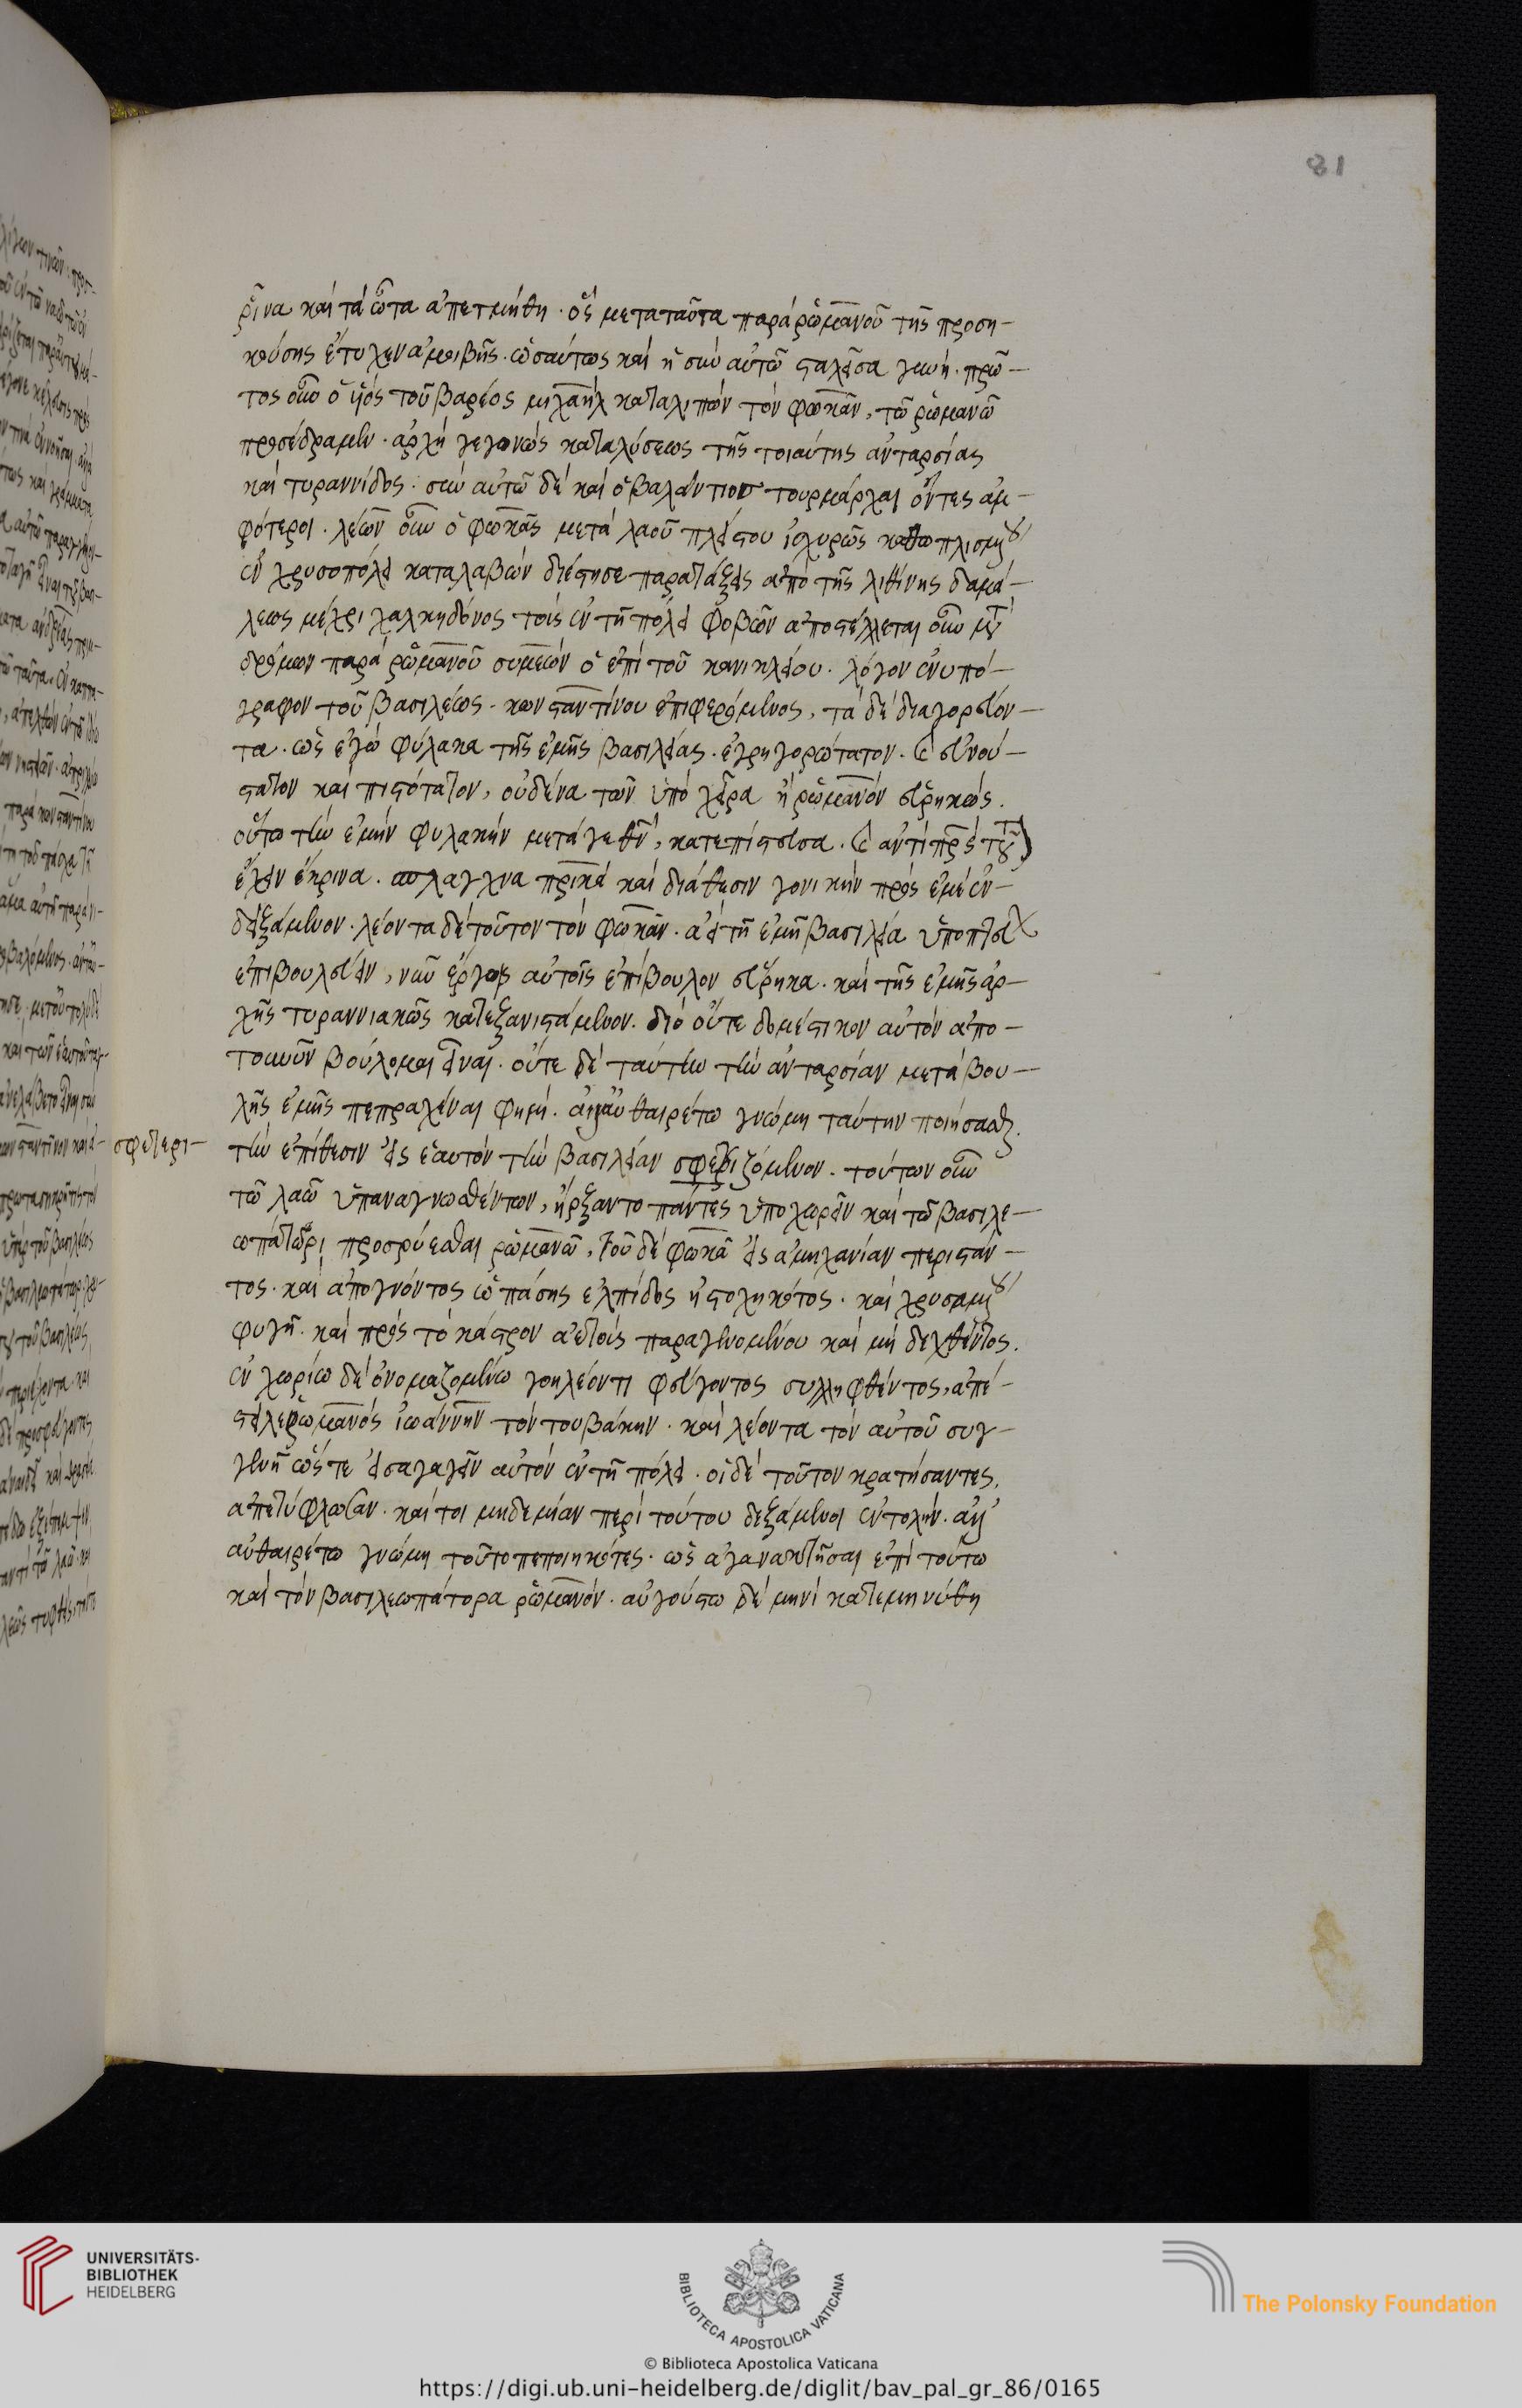 81
ῥῖνα καὶ τὰ ὦτα ἀπετμήθη. ὃς μεταταῦτα παρὰ ῥωμανοῦ τῆς προση-
κούσης ἔτυχεν ἀμοιβῆς. ὡσαύτως καὶ ἡ σὺν αὐτῶ σταλεῖσα γυνή. πρῶ-
τος οὖν ὁ υἱός τοῦ βαρέος μιχαὴλ καταλιπὼν τὸν φωκᾶν, τῶ ῥωμανῶ
προσέδραμεν. ἀρχὴ γεγονὼς καταλύσεως τῆς τοιαύτης ἀνταρσίας
καὶ τυραννίδος. σὺν αὐτῶ δὲ καὶ ὁ βαλάντιος τουρμάρχαι ὄντες ἀμ-
φότεροι. λέων οὖν ὁ φωκᾶς μετὰ λαοῦ πλείστου ἰσχυρῶς καθωπλισμένου
ἐν χρυσοπόλει καταλαβὼν διέστησε παρατάξεις ἀπὸ τῆς λιθίνης δαμά-
λεως μέχρι χαλκηδόνος τοὺς ἐν τῆ πόλει φοβῶν ἀποστέλλεται οὖν μετὰ
δρόμων παρὰ ῥωμανοῦ συμεὼν ὁ ἐπὶ τοῦ κανικλείου. λόγον ἐνυπό-
γραφον τοῦ βασιλέως. κωνσταντίνου ἐπιφερόμενος, τὰ δὲ διαγορεύον-
τα. ὡς ἐγὼ φύλακα τῆς ἐμῆς βασιλείας. ἐγρηγορώτατον. καὶ εὐνού-
στατον καὶ πιστότατον, οὐδένα τῶν ὑπὸ χεῖρα ἢ ῥωμανὸν εὑρηκώς.
οὕτω τὴν ἐμὴν φυλακὴν μετὰ κατεπίστευσα. καὶ ἀντὶ πρς τοῦτον
ἔχειν ἔκρινα. σπλαγχνα πρικὰ καὶ διάθεσιν γονικὴν πρὸς ἐμὲ ἐν-
δειξάμενον. λέοντα δὲ τοῦτον τὸν φωκᾶν. ἀεὶ τῆ ἐμῆ βασιλεία ὑποπτεύων
ἐπιβουλεύειν, νῦν ἔργοις αὐτοῖς ἐπίβουλον εὕρηκα. καὶ τῆς ἐμῆς ἀρ-
χῆς τυραννικῶς κατεξανιστάμενον. διὸ οὔτε δομέστικον αὐτὸν ἀπο-
τουνῦν βούλομαι εἶναι. οὔτε δὲ ταύτην τὴν ἀνταρσίαν μετὰ βου-
λῆς ἐμῆς πεπραχέναι φημί. ἀλλαὐθαιρέτω γνώμη ταύτην ποιήσασθαι.
τὴν ἐπίθεσιν εἰς ἑαυτὸν τὴν βασιλείαν σφεριζόμενον. τούτων οὖν
σφετερι-
τῶ λαῶ ὑπαναγνωσθέντων, ἤρξαντο πάντες ὑποχωρεῖν καὶ τῶ βασιλε-
ωπάτωρι προσρύεσθαι ῥωμανῶ, τοῦ δὲ φωκᾶ εἰς ἀμηχανίαν περιστάν-
τος. καὶ ἀπογνόντος ὡς πάσης ἐλπίδος ἠστοχηκότος. καὶ χρησαμένου
φυγῆ. καὶ πρὸς τὸ κάστρον ἀτεοῦς παραγενομένου καὶ μὴ δεχθέντος.
ἐν χωρίω δὲ ὀνομαζομένω γοηλέοντι φεύγοντος συλληφθέντος, ἀπέ-
στειλε ῥωμανὸς ἰωάννην τὸν τουβάκην. καὶ λέοντα τὸν αὐτοῦ συγ-
γενῆ ὥστε εἰσαγαγεῖν αὐτὸν ἐν τῆ πόλει. οἱ δὲ τοῦτον κρατήσαντες,
ἀπετύφλωσαν. καίτοι μηδεμίαν περὶ τούτου δεξάμενοι ἐντολήν. ἀλλ'
αὐθαιρέτω γνώμη τοῦτο πεποιηκότες. ὡς ἀγανακτῆσαι ἐπὶ τούτω
καὶ τὸν βασιλεωπάτορα ῥωμανόν. αὐγούστω δὲ μηνὶ κατεμηνύθη
UNIVERSITÄTS-
BIBLIOTHEK
HEIDELBERG
BIBLIOTECA APOSTOLICA VATICANA
The Polonsky Foundation
© Biblioteca Apostolica Vaticana
https://digi.ub.uni-heidelberg.de/diglit/bav_pal_gr_86/0165